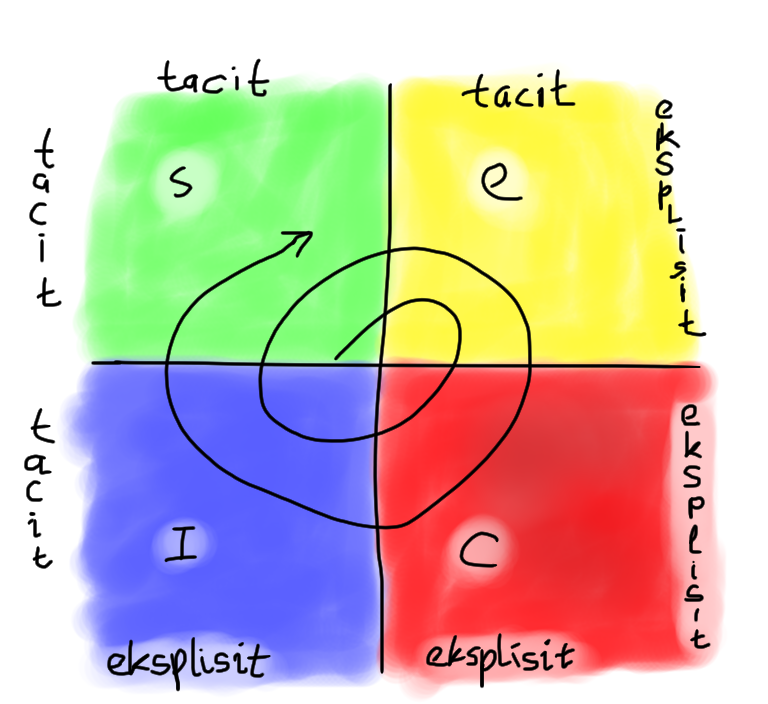 tacit
tacit
tacit
eksplisit
s
e
tacit
eksplisit
I
C
eksplisit
eksplisit